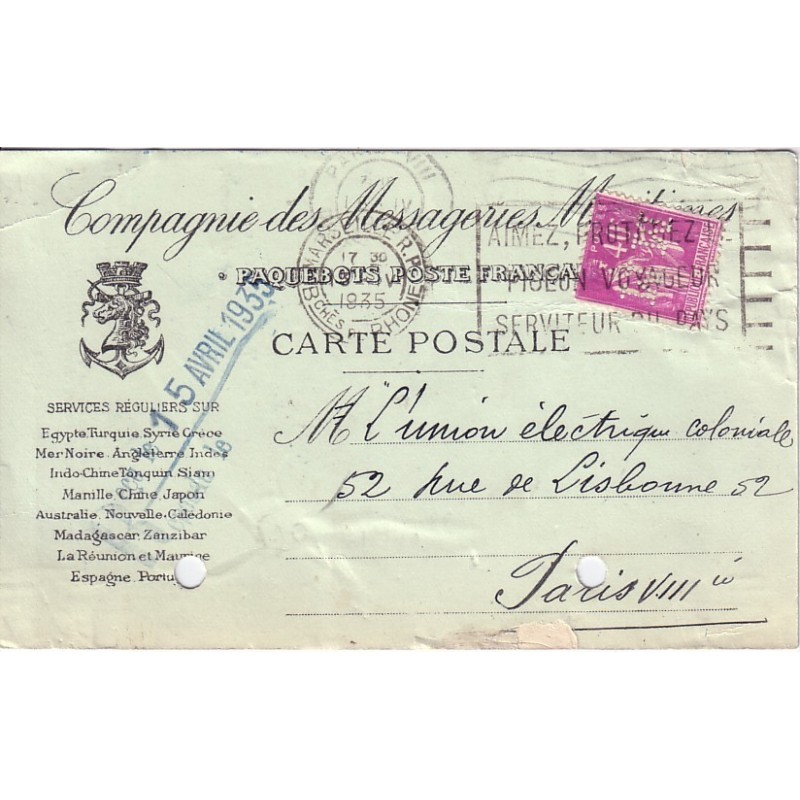 Compagnie des Messageries Maritimes
PAQUEBOTS POSTE FRANÇA
CARTE POSTALE
MARSEILLE
17 30
1935
BCHES DU RHONE
AIMEZ, PROTEGEZ LE
PIGEON VOYAGEUR
SERVITEUR DU PAYS
15 AVRIL 1935
SERVICES RÉGULIERS SUR
Egypte. Turquie. Syrie. Grèce
Mer Noire. Angleterre. Indes
Indo-Chine. Tonquin. Siam
Manille. Chine. Japon
Australie. Nouvelle-Calédonie
Madagascar. Zanzibar
La Réunion et Maurice
Espagne. Portug
M "L'union électrique coloniale
52 rue de Lisbonne 52
Paris VIIIè